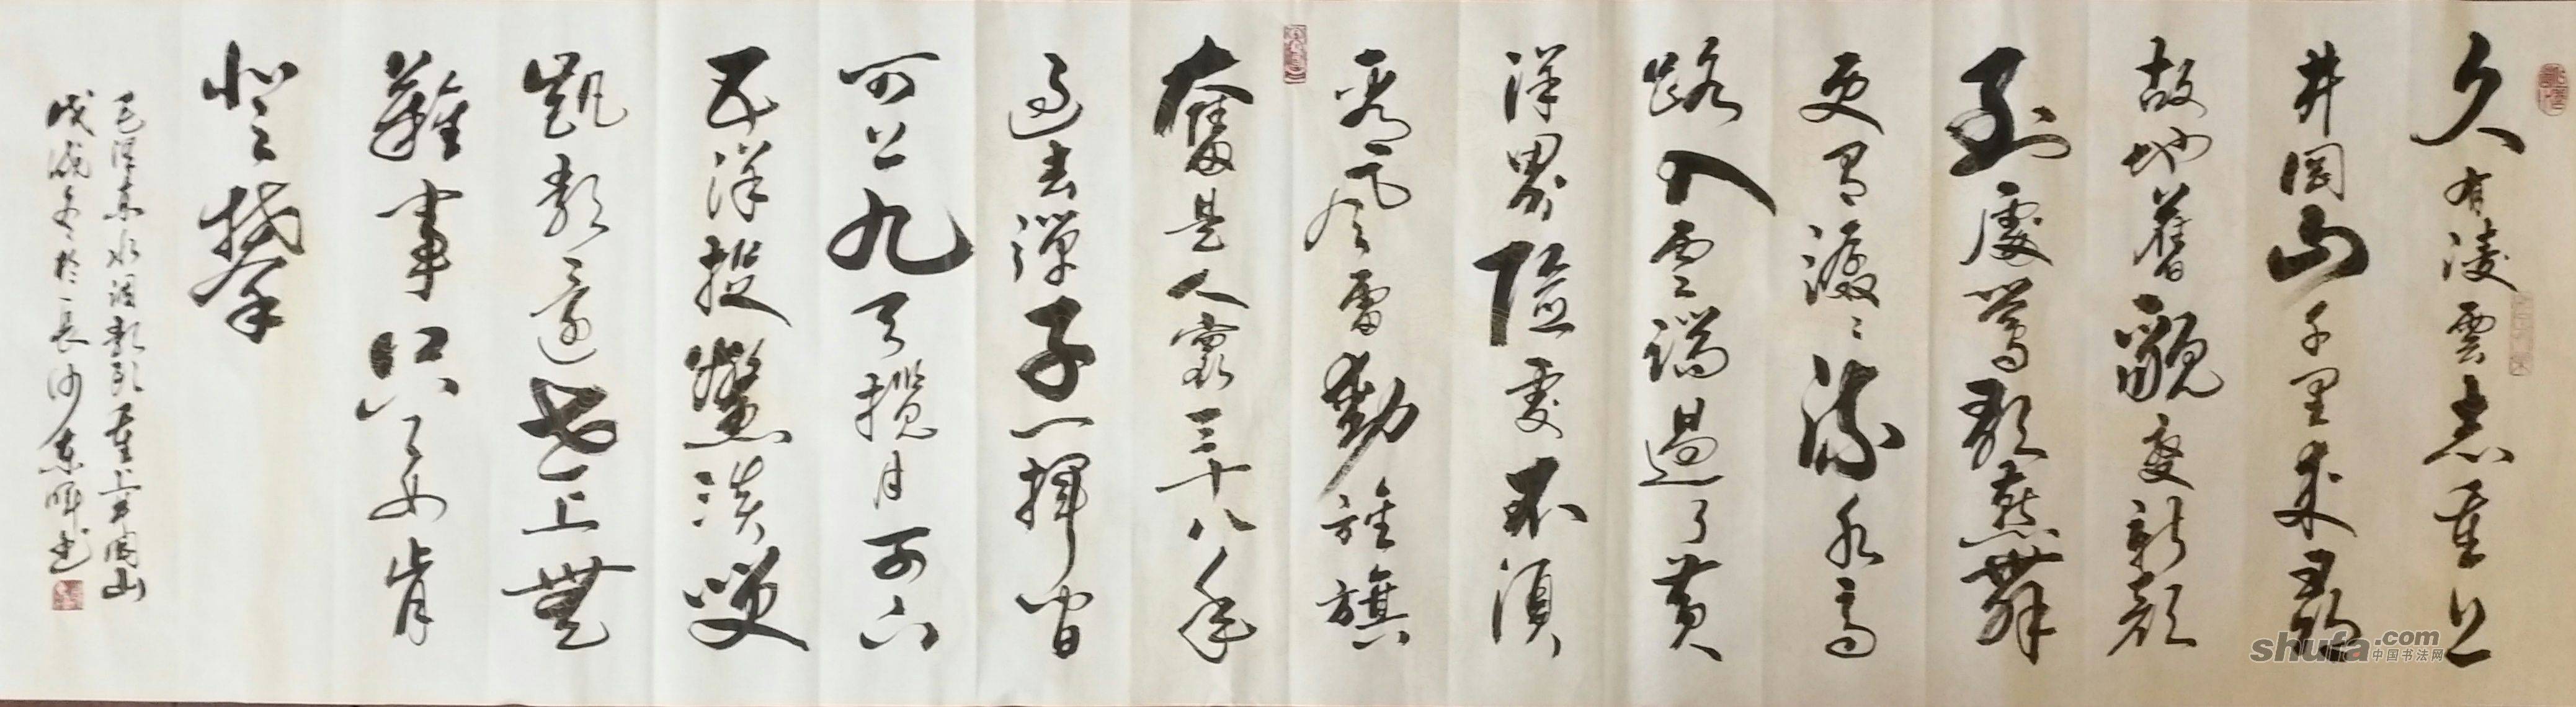 久有凌雲志重上
井岡山千里來尋
故地舊貌變新顏
到處鶯歌燕舞
更有潺潺流水高
路入雲端過了黄
洋界險處不須
看風雷動旌旗
奮是人寰三十八年
過去彈子一揮間
可上九天攬月可下
五洋捉鱉談笑
凱歌還世上無
難事只要肯
登攀
毛澤東水調歌頭重上井岡山
戊戌冬於長沙東暉书
shufa.com
中国书法网